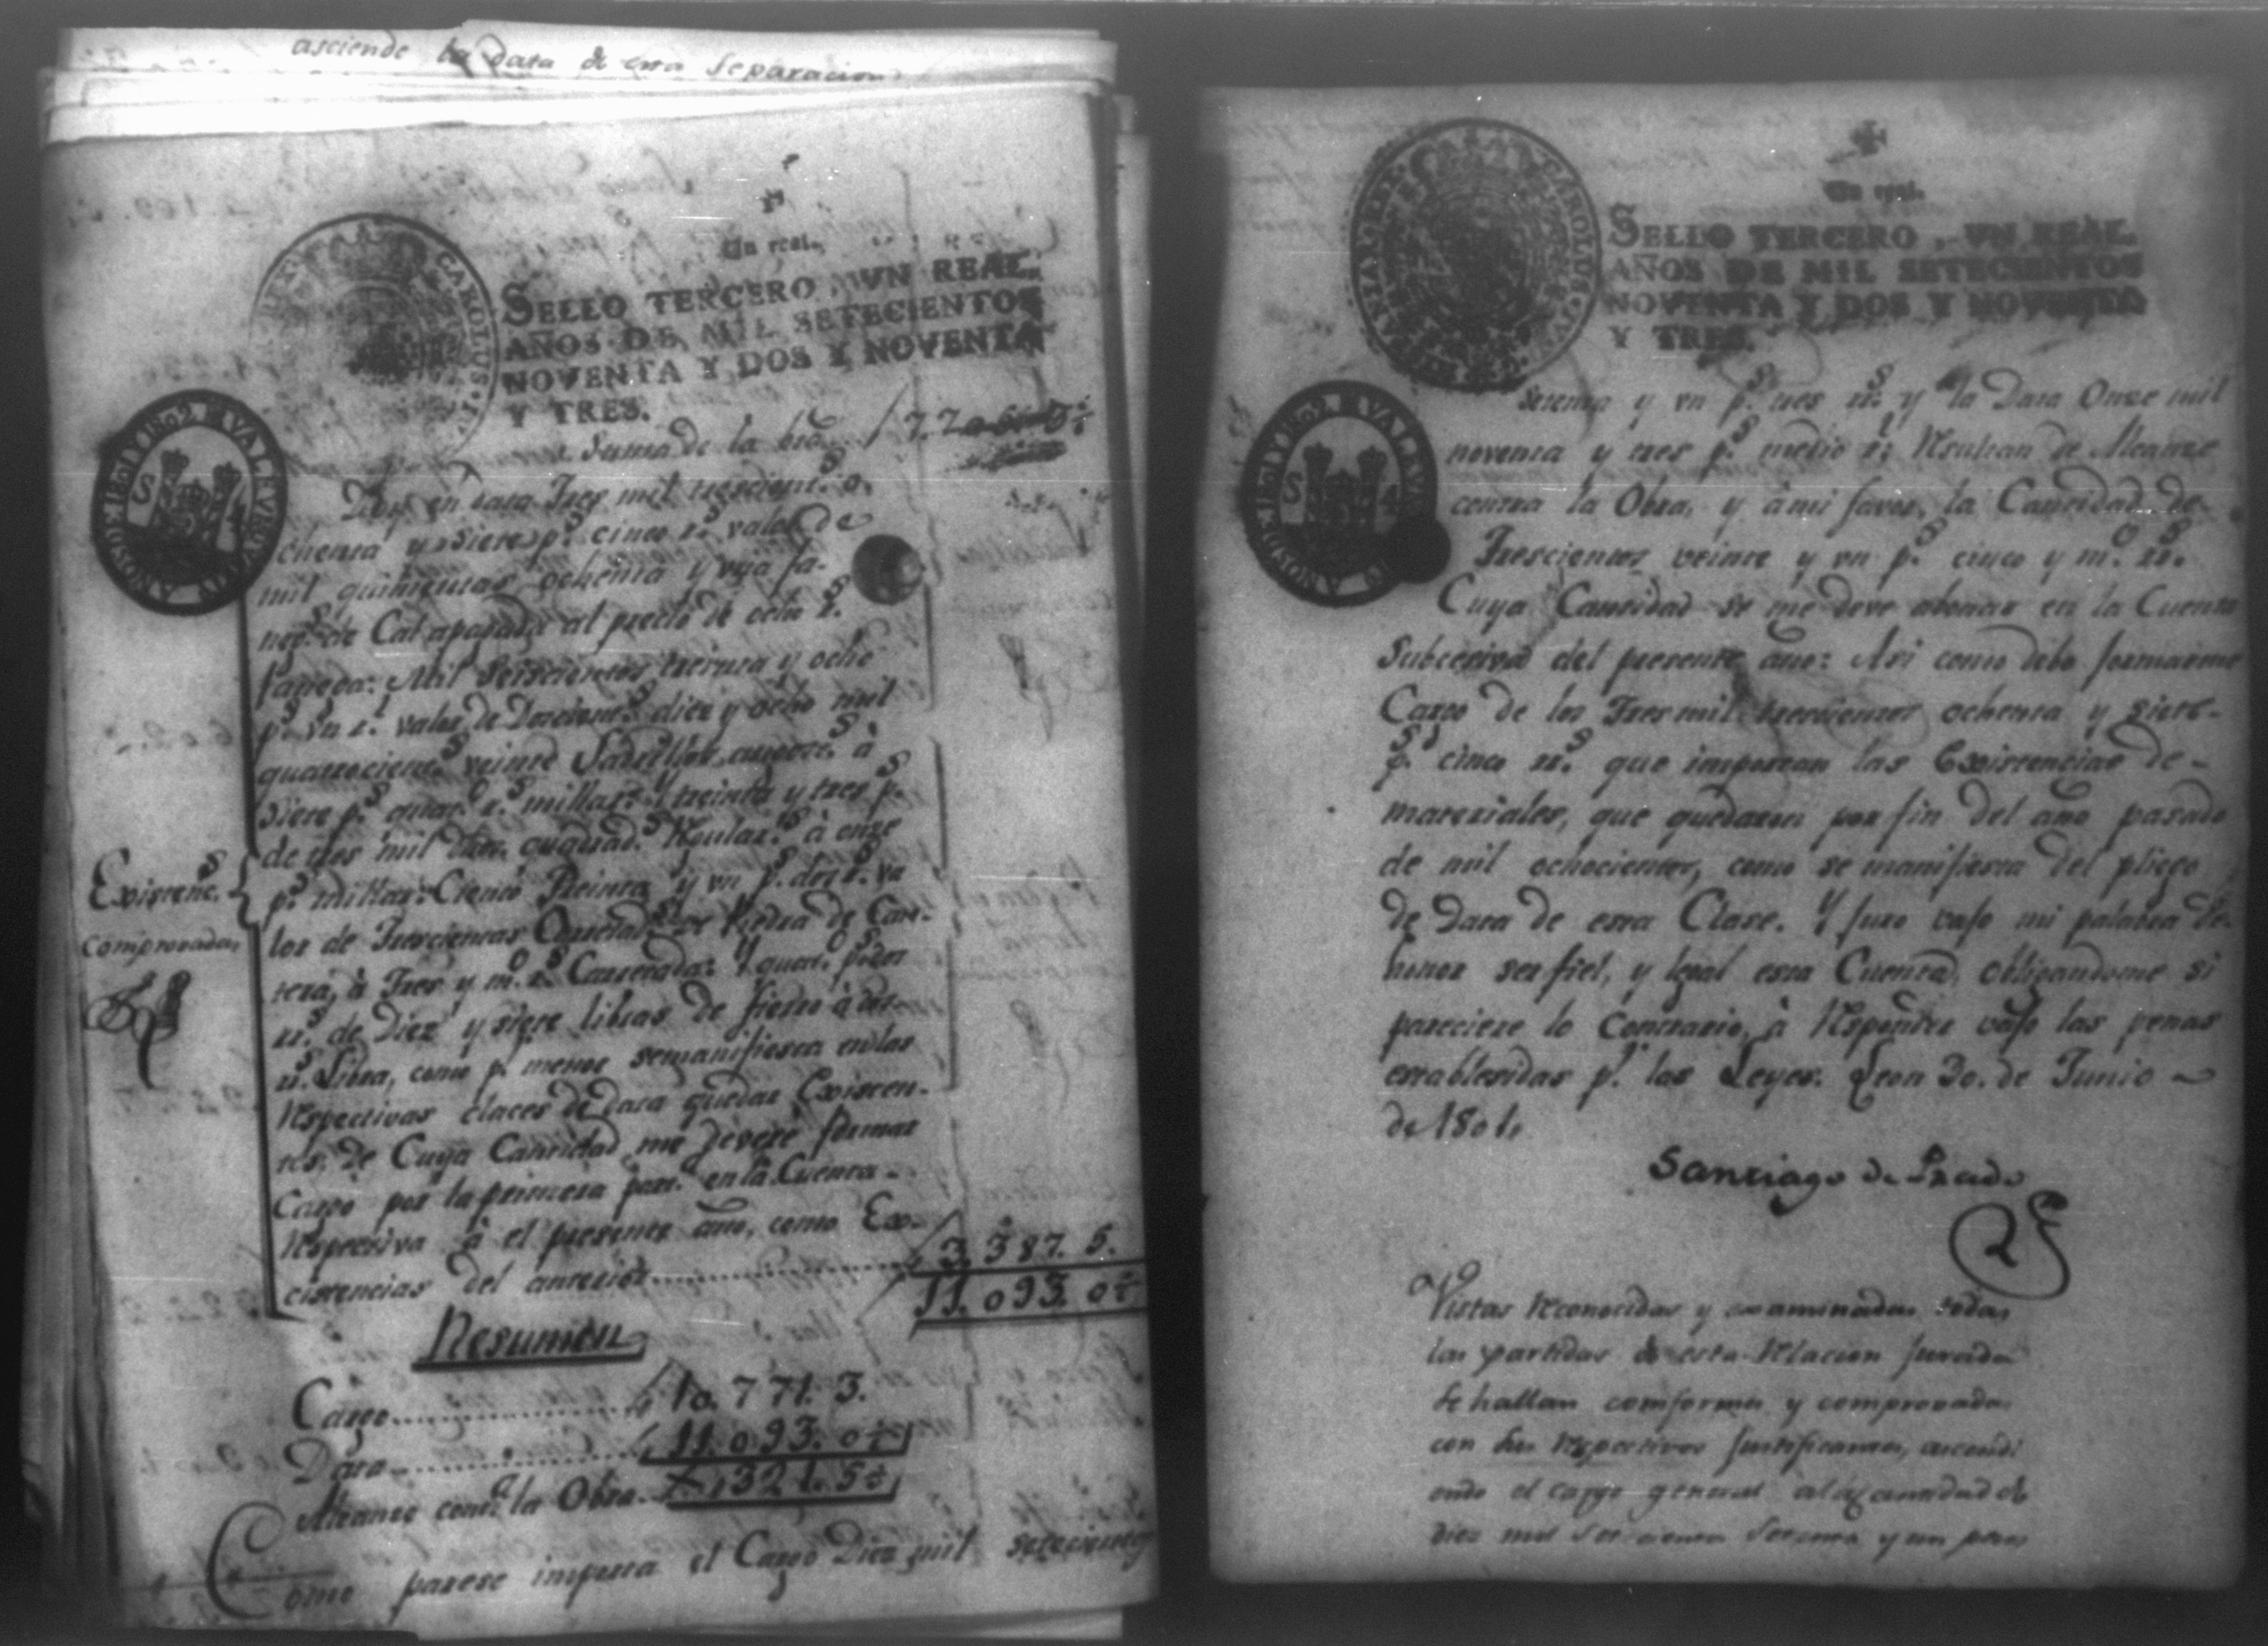 asciende la data de esta separacion
Un real.
SELLO TERCERO, VN REAL.
AÑOS DE MIL SETECIENTOS
NOVENTA Y DOS Y NOVENTA
Y TRES.
CAROLUS IV
Suma de la bta 7.7
Doy en data Tres mil trescient.s o
chenta y siete p.s cinco r.s valor de
mil quinientas ochenta y una fa-
neg.s de Cal apagada al precio de ocho r.s
fanega: Mil seiscientos treinta y ocho
p.s vn r.l valor de Doscient.s diez y ocho mil
quatrocient.s veinte Ladrillos
siete p.s quat.o r.s millar: Y treinta y tres p.s
de tres mil quadrad.s Regular.s à onze
p.s millar: Ciento Treinta y vn p.s dos r.s va
lor de Trescientas Carretad.s de Piedra de Can-
tera, à Tres y m.o r.s Carretada: Y quat.o p.s dos
rr.s de Diez y siete libras de fierro à dos
rr.s Libra, como p.r menor se manifiesta en las
Respectivas claces de data quedar Existen-
tes: De Cuya Cantidad me devere formar
Cargo por la primera part.a en la Cuenta
Respectiva à el presente año, como Ex-
cistencias del anterior 3.387. 5.
11.093. 0½
Existenc.s
comprovadas
Resumen
Cargo 10.771. 3.
Data 11.093. 0½
Alcanze cont.a la Obra ,321. 5½
Como parese importa el Cargo Diez mil setecientos
Un real.
SELLO TERCERO, VN REAL.
AÑOS DE MIL SETECIENTOS
NOVENTA Y DOS Y NOVENTA
Y TRES.
setenta y vn p.s tres rr.s y la Data Onze mil
noventa y tres p.s medio r.l Resultan de Alcanze
contra la Obra, y à mi favor, la Cantidad de
Trescientos veinte y vn p.s cinco y m.o rr.s
Cuya Cantidad se me deve abonar en la Cuenta
Subcesiva del presente año: Asi como debo formarme
Cargo de los Tres mil trescientos ochenta y siete
p.s cinco rr.s que importan las Existencias de
materiales, que quedaron por fin del año pasado
de mil ochocientos, como se manifiesta del pliego
de Data de esta Clase. Y Juro vajo mi palabra de
honor ser fiel, y legal esta Cuenta, obligandome si
pareciere lo contrario, à Responder vajo las penas
establesidas p.r las Leyes. Leon 30. de Junio
de 1801.
Santiago de Prado
Vistas Reconocidas y examinadas todas
las partidas de esta Relacion Jurada
se hallan comformes y comprovadas
con sus Respectivos Justificantes, ascendi
endo el cargo general a la cantidad de
diez mil setecientos setenta y un pesos